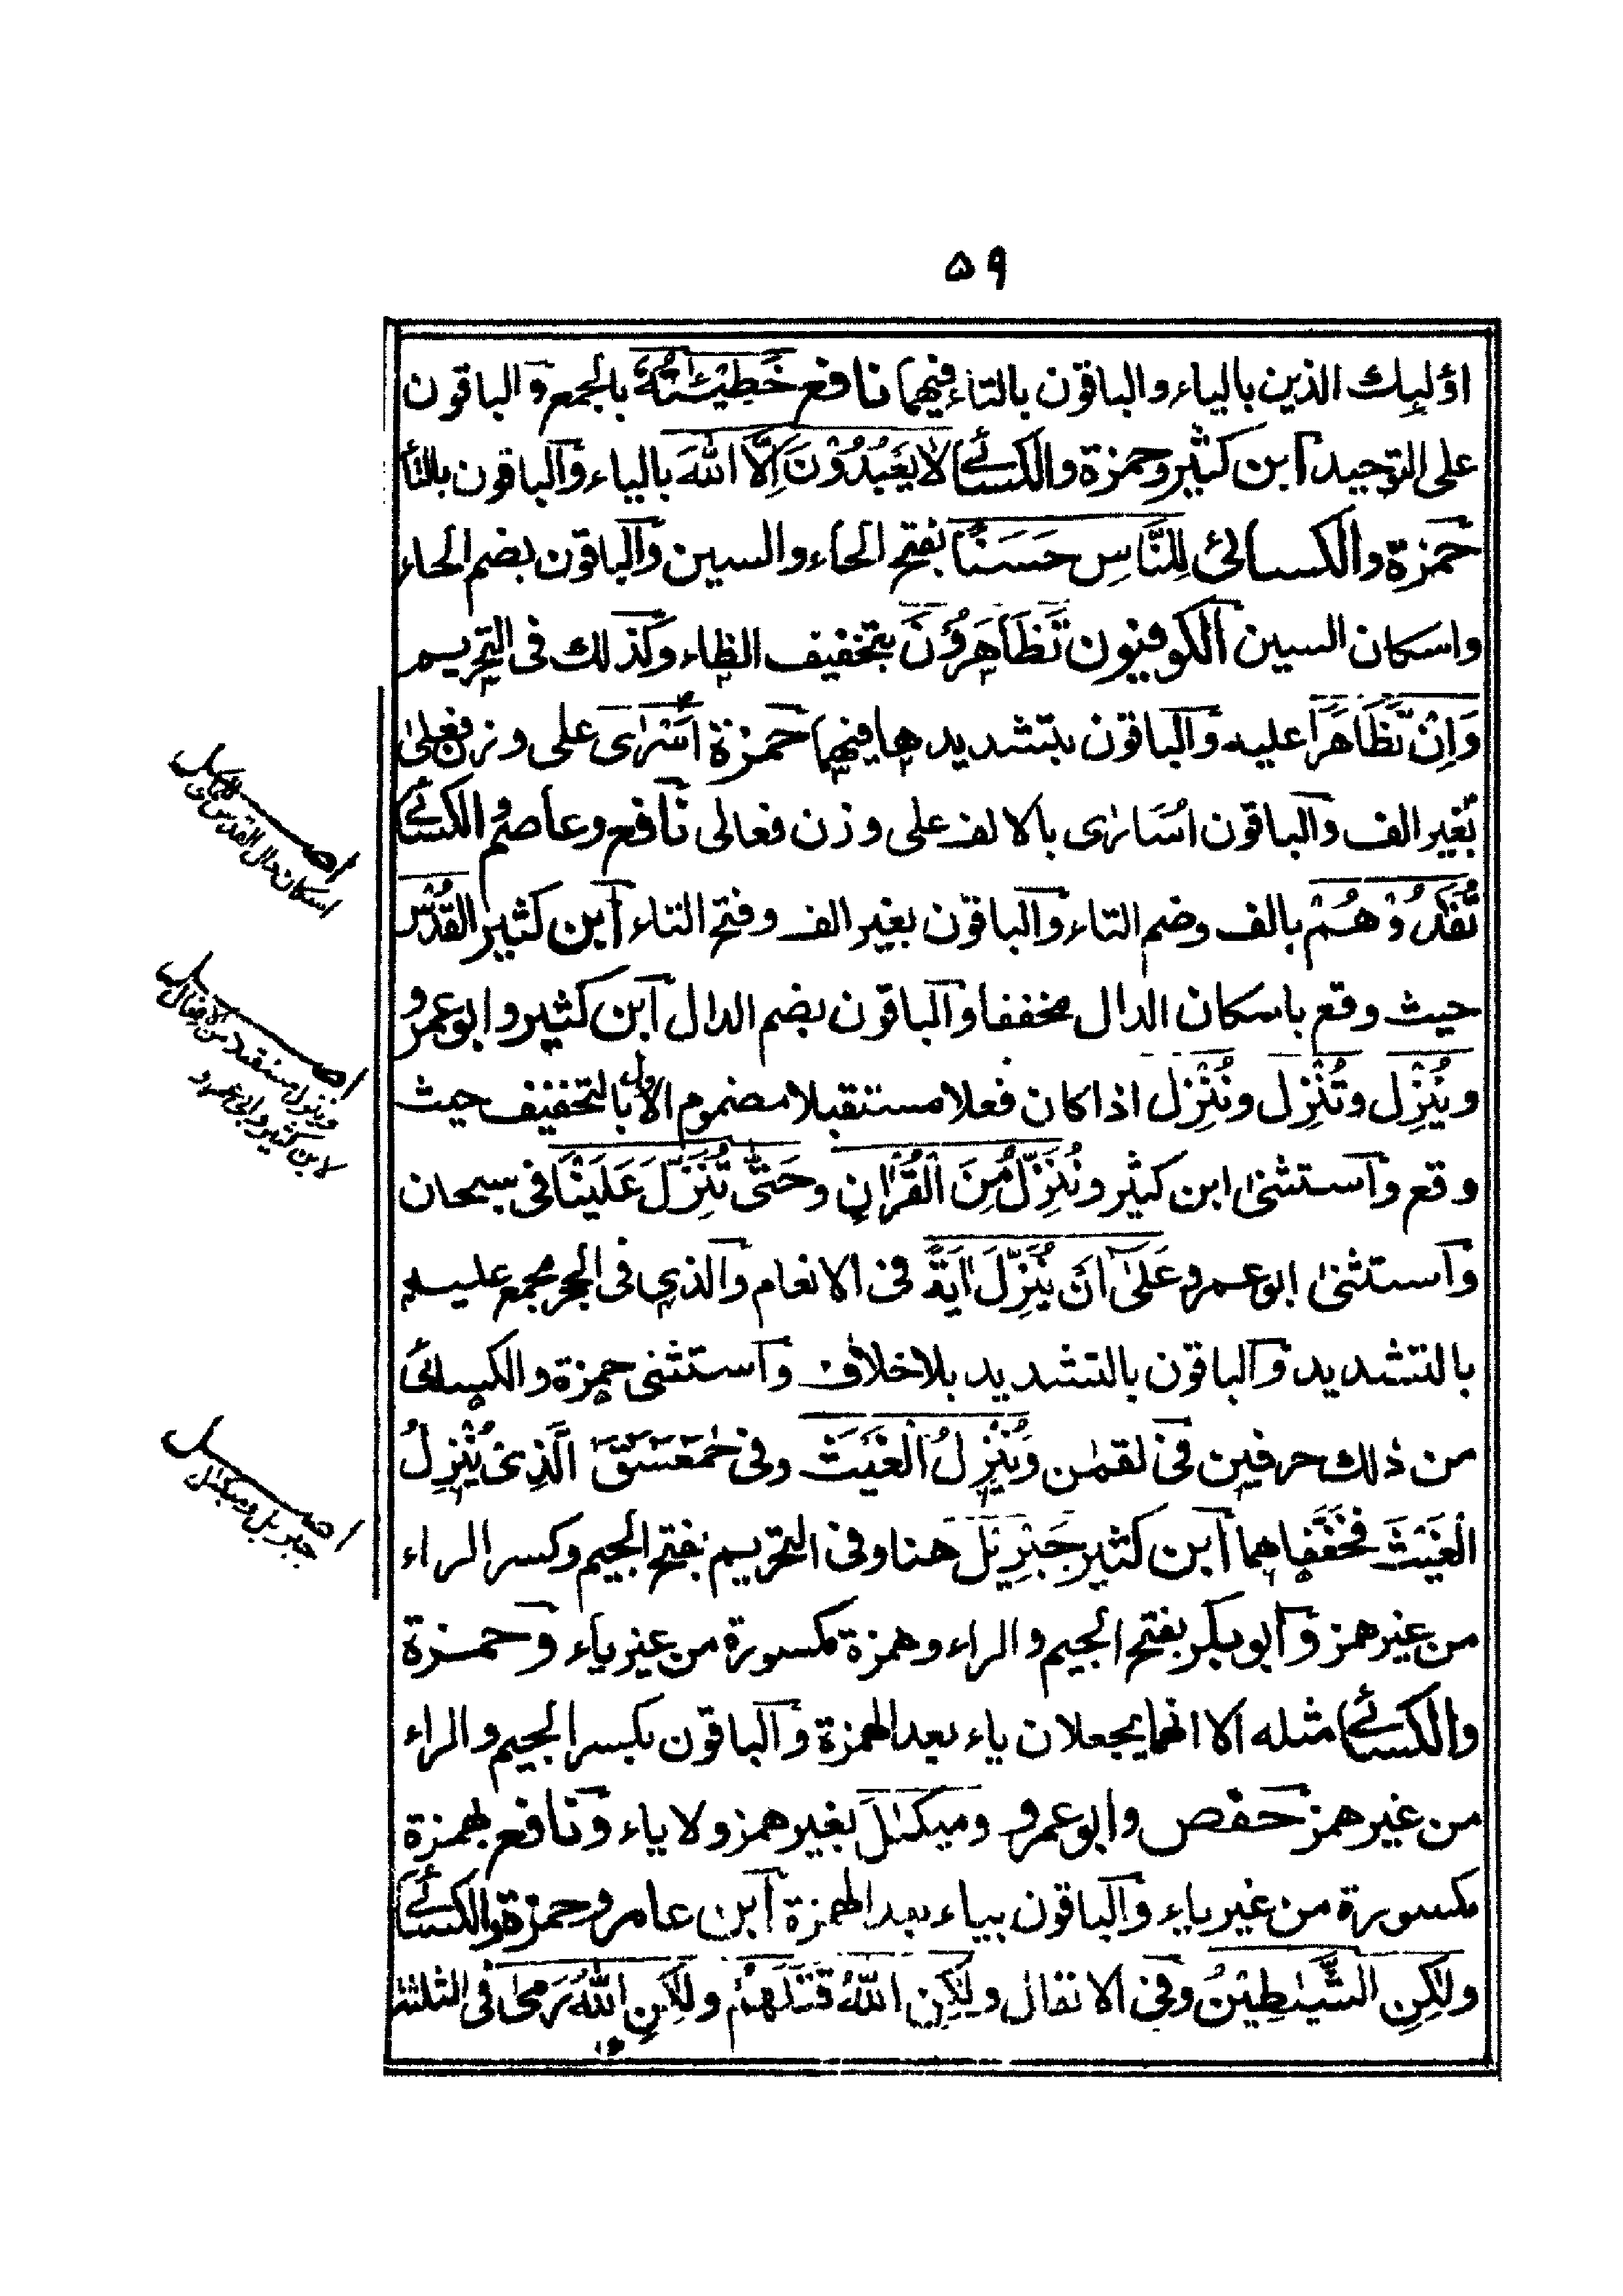 ۵۹
اؤلٓئك الذين بالياء والباقون بالتاء فيهما نافع خَطِيْئٰتُهٗ بالجمع والباقون
على التوحيد ابن كثير وحمزة والكسائى لَا يَعْبُدُوْنَ اِلَّا اللّٰهَ بالياء والباقون بالتاء
حمزة والكسائى لِلنَّاسِ حَسَنًا بفتح الحاء والسين والباقون بضم الحاء
واسكان السين الكوفيون تَظَاهَرُوْنَ بتخفيف الظاء وكذلك فى التحريم
وَاِنْ تَظَاهَرَا عليه والباقون بتشديدها فيهما حمزة اَسْرٰى على وزن فعلىٰ
بغير الف والباقون اُسَارٰى بالالف على وزن فعالى نافع وعاصم والكسائى
تُفٰدُوْهُمْ بالف وضم التاء والباقون بغير الف وفتح التاء ابن كثير القُدْس
حيث وقع باسكان الدال مخففا والباقون بضم الدال ابن كثير وابو عمرو
ويُنْزِل وتُنْزِل ونُنْزِل اذا كان فعلا مستقبلا مضموم الاول بالتخفيف حيث
وقع واستثنىٰ ابن كثير ونُنَزِّلُ مِنَ الْقُرْاٰنِ وحَتّٰى تُنَزِّلَ عَلَيْنَا فى سبحان
واستثنىٰ ابو عمرو عَلٰٓى اَنْ يُنَزِّلَ اٰيَةً فى الانعام والذى فى الحجر مجمع عليه
بالتشديد والباقون بالتشديد بلا خلاف واستثنى حمزة والكسائى
من ذٰلك حرفين فى لقمٰن وَيُنْزِلُ الْغَيْثَ وفى حٰمٓعٓسٓقٓ الَّذِىْ يُنْزِلُ
الْغَيْثَ فخففاهما ابن كثير جَبْرِيْلَ هنا وفى التحريم بفتح الجيم وكسر الراء
من غير همز وابو بكر بفتح الجيم والراء وهمزة مكسورة من غير ياء وحمزة
والكسائى مثله الا انهما يجعلان ياء بعد الهمزة والباقون بكسر الجيم والراء
من غير همز حفص وابو عمرو وميكٰلَ بغير همز ولا ياء ونافع بهمزة
مكسورة من غير ياء والباقون بياء بعد الهمزة ابن عامر وحمزة والكسائى
ولٰكِنِ الشَّيٰطِيْنُ وفى الانفال ولٰكِنِ اللّٰهُ قَتَلَهُمْ ولٰكِنِ اللّٰهُ رَمٰى فى الثلثة
اصل
اسكان دال القدس
اصل
وينزل مستقبلا من الافعال
لابن كثير وابى عمرو
اصل
جبريل وميكٰل